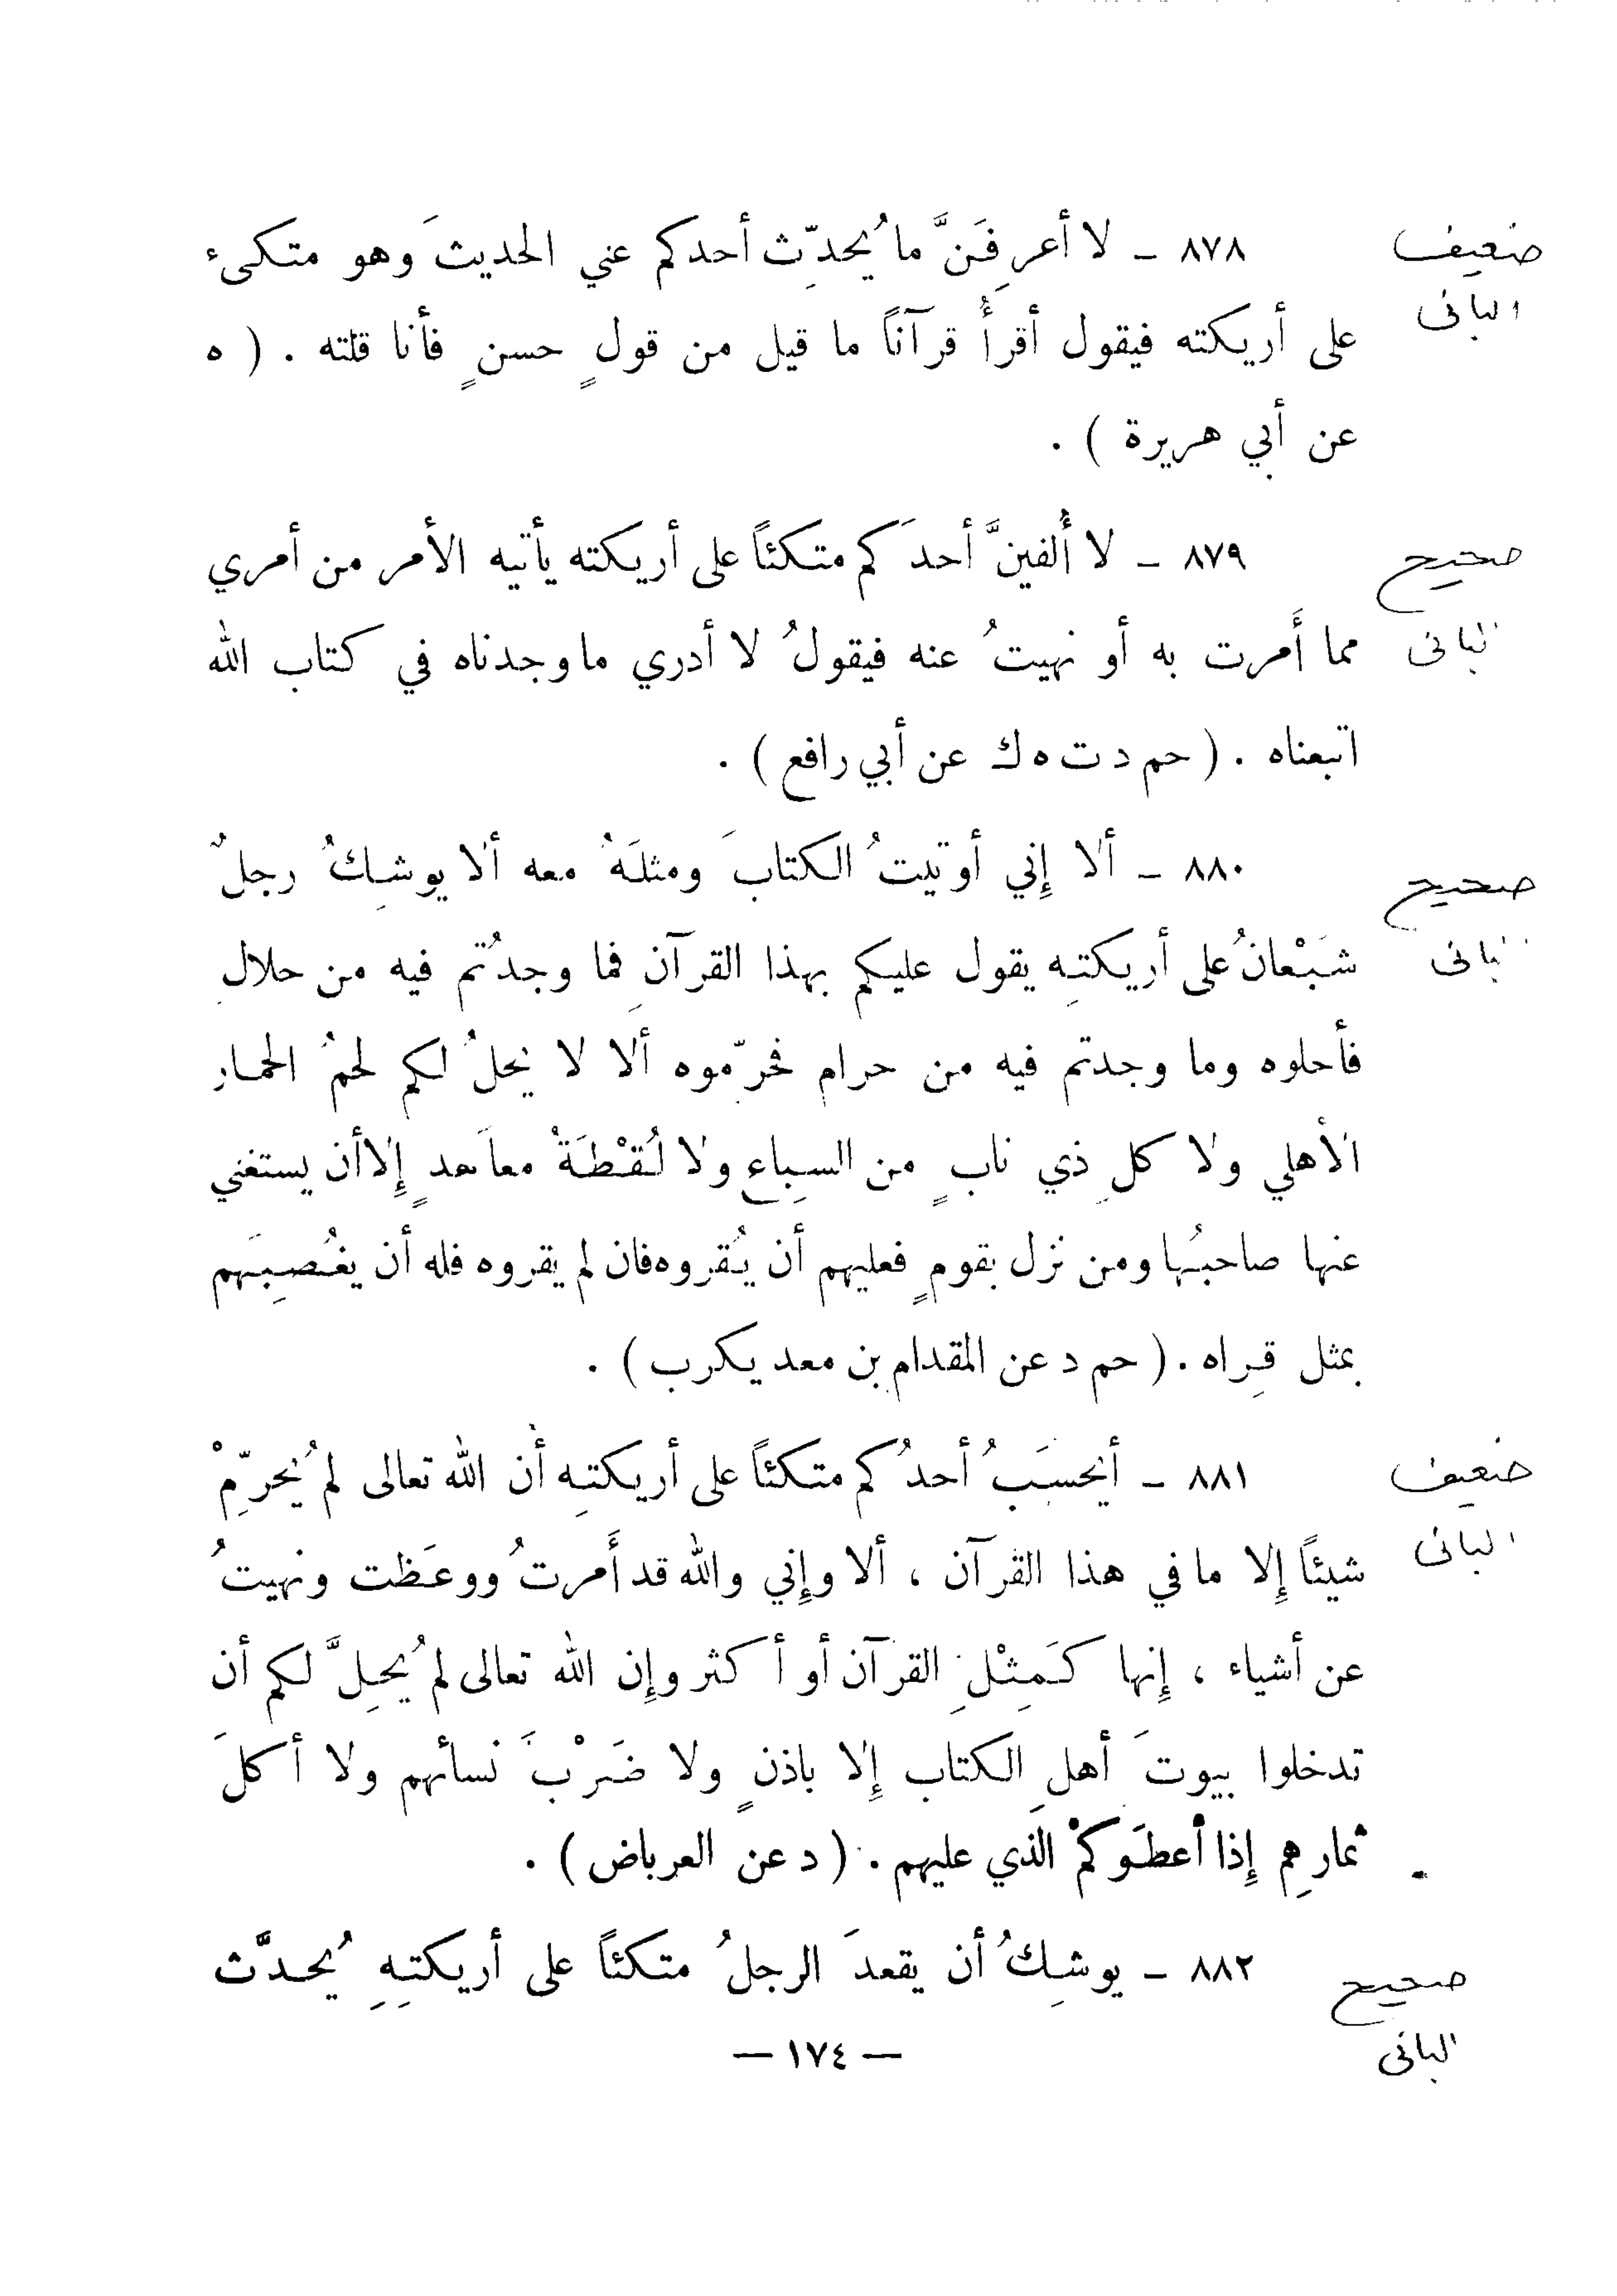 ضعيف
البانى
٨٧٨ ـ لا أعرِفَنَّ ما يُحدِّث أحدكم عني الحديثَ وهو متكىء
على أريكته فيقول أقرأُ قرآناً ما قيل من قولٍ حسنٍ فأنا قلته . ( ه
عن أبي هريرة ) .
صحيح
البانى
٨٧٩ ـ لا أُلفينَّ أحدَكم متكئاً على أريكته يأتيه الأمر من أمري
مما أَمرت به أو نهيتُ عنه فيقولُ لا أدري ما وجدناه في كتاب الله
اتبعناه . ( حم د ت ه ك عن أبي رافع ) .
صحيح
البانى
٨٨٠ ـ ألا إِني أوتيتُ الكتابَ ومثلَهُ معه ألا يوشِكُ رجلٌ
شَبْعانُ على أريكتِه يقول عليكم بهذا القرآنِ فما وجدُتم فيه من حلالٍ
فأحلوه وما وجدتم فيه من حرام فحرّموه ألا لا يحلُ لكم لحمُ الحمار
الأهلي ولا كلِ ذي نابٍ من السِباع ولا لُقْطَةُ معاَهدٍ إِلا أن يستغني
عنها صاحبُها ومن نزل بقومٍ فعليهم أن يُقروه فان لم يقروه فله أن يغُصِبَهم
بمثل قِراه . ( حم د عن المقدام بن معد يكرب ) .
ضعيف
البانى
٨٨١ ـ أيحسَبُ أحدُكم متكئاً على أريكتِه أن الله تعالى لم يُحرِّمْ
شيئاً إِلا ما في هذا القرآن ، ألا وإِني والله قد أَمرتُ ووعَظت ونهيتُ
عن أشياء ، إِنها كَمِثْلِ القرآن أو أكثر وإِن الله تعالى لم يُحِلَّ لكم أن
تدخلوا بيوتَ أهلِ الكتاب إِلا باذنٍ ولا ضَرْبَ نسائهم ولا أكلَ
ثمارِهم إِذا أعطَوكمْ الذي عليهم . ( د عن العرباض ) .
صحيح
البانى
٨٨٢ ـ يوشِكُ أن يقعدَ الرجلُ متكئاً على أريكتِهِ يُحدَّث
— ١٧٤ —